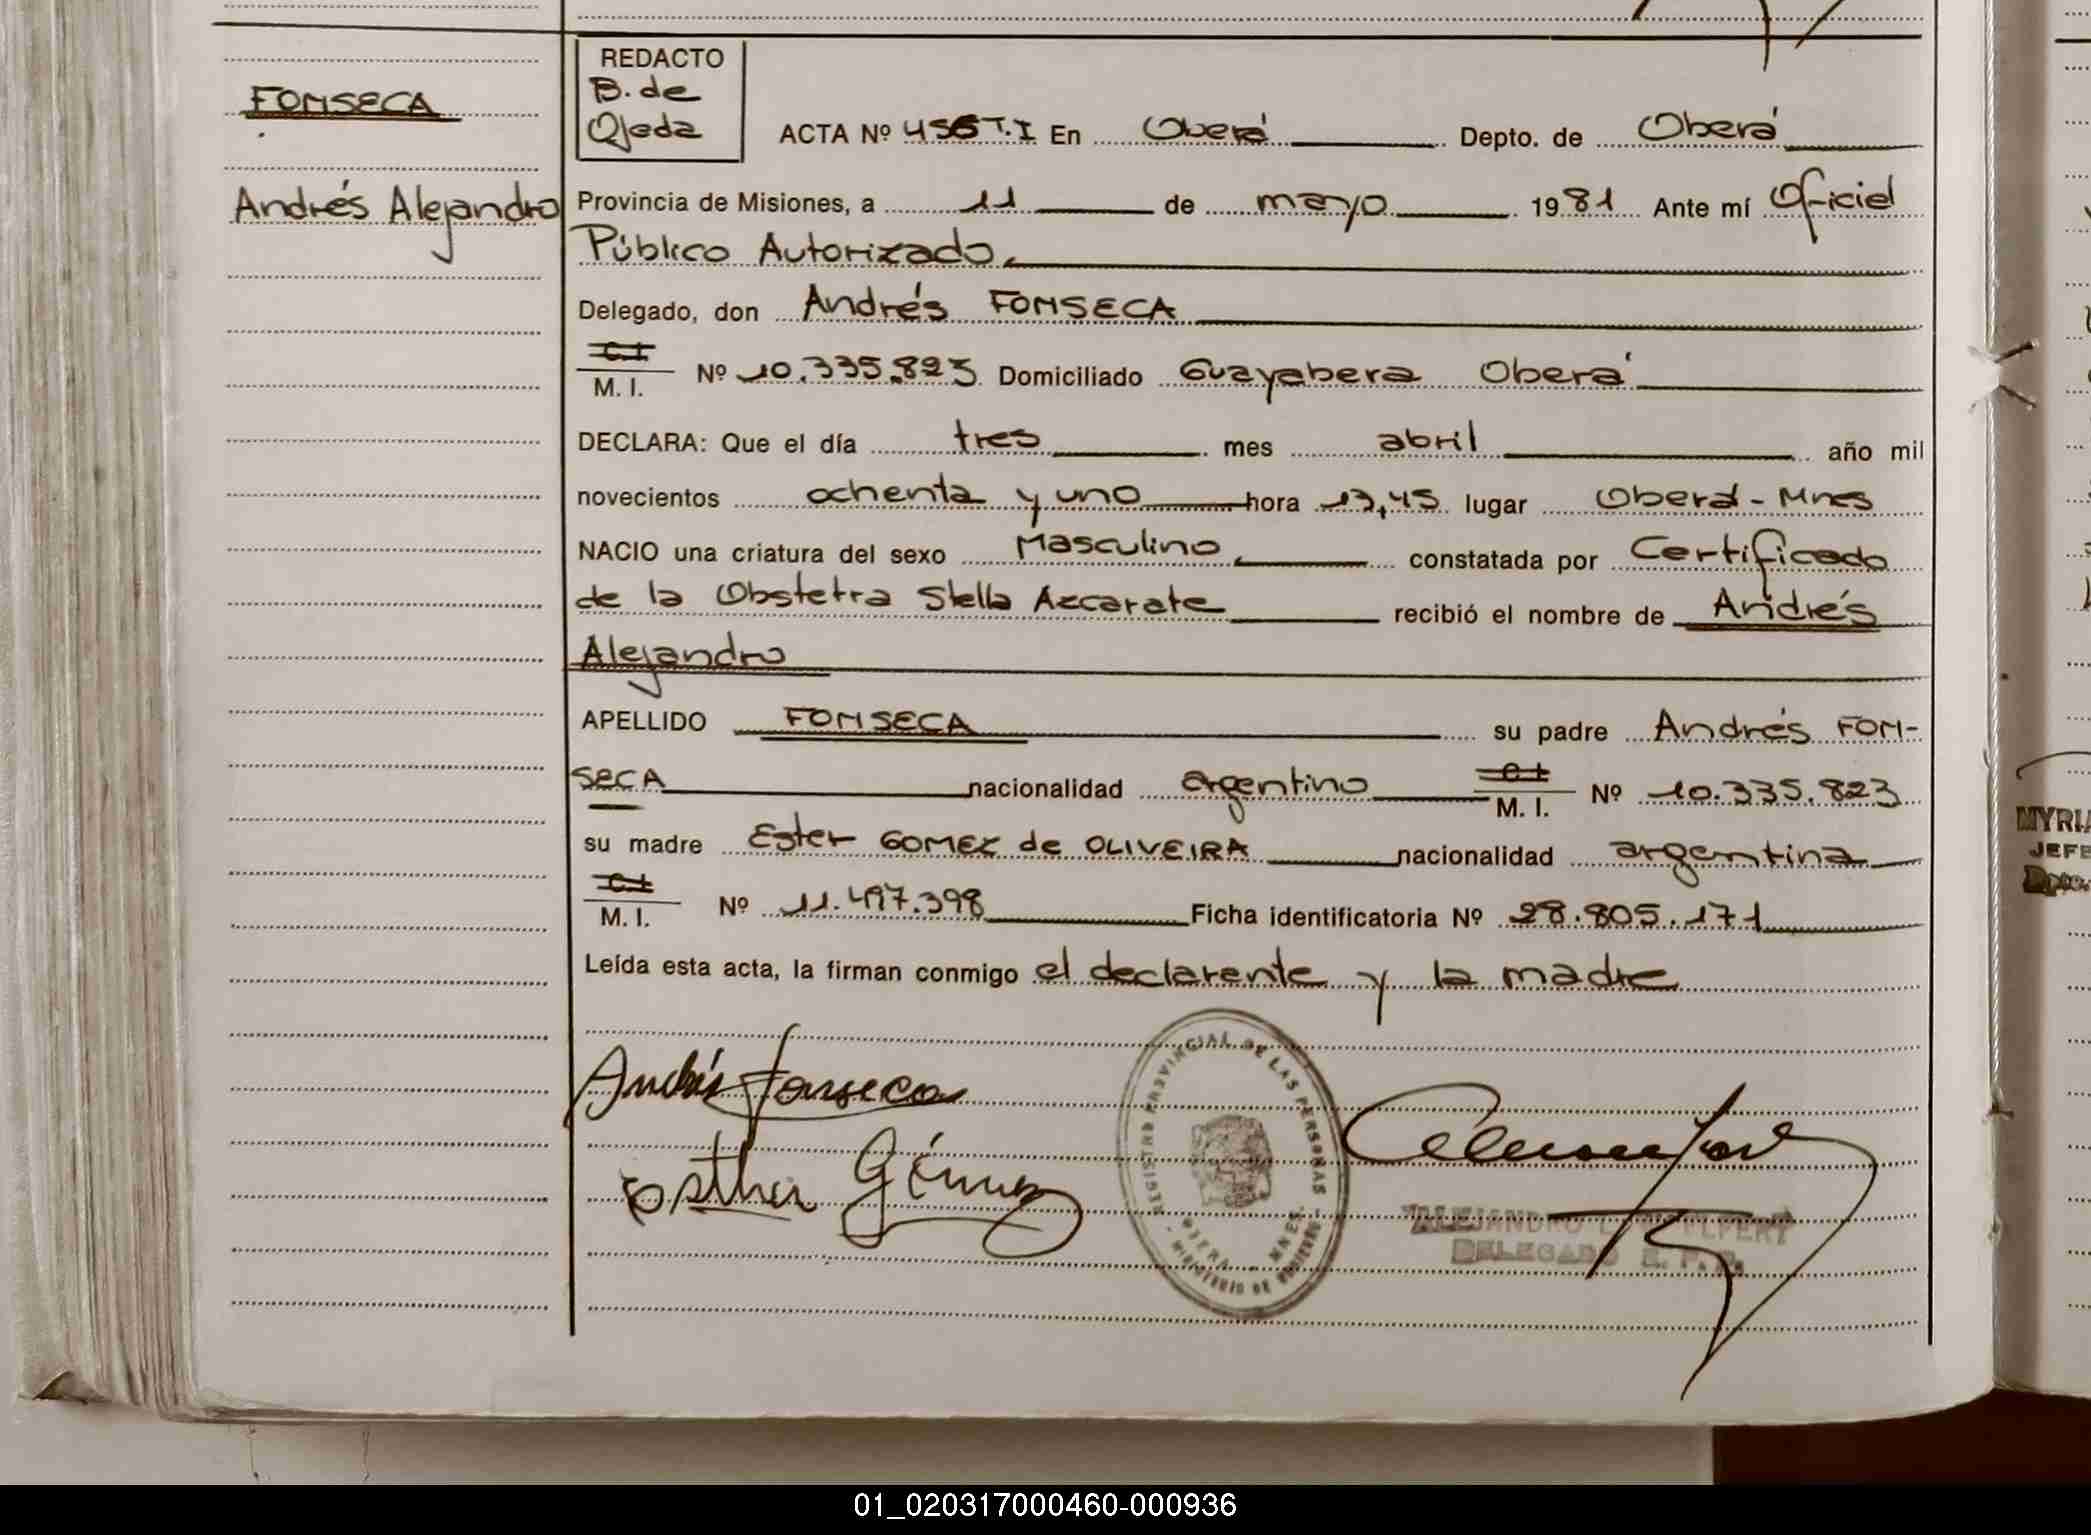 REDACTO
B. de
Ojeda
FONSECA
Andrés Alejandro
ACTA Nº 456 T.I En Oberá Depto. de Oberá
Provincia de Misiones, a 11 de mayo 1981 Ante mí Oficial
Público Autorizado.
Delegado, don Andrés FONSECA
C.I.
M. I. Nº 10.335.823 Domiciliado Guayabera Oberá
DECLARA: Que el día tres mes abril año mil
novecientos ochenta y uno hora 13,45 lugar Oberá - Mnes
NACIO una criatura del sexo Masculino, constatada por Certificado
de la Obstetra Stella Azcarate recibió el nombre de Andrés
Alejandro
APELLIDO FONSECA su padre Andrés FON-
SECA nacionalidad argentino C.I. M. I. Nº 10.335.823
su madre Ester GOMEZ de OLIVEIRA nacionalidad argentina
C.I.
M. I. Nº 11.497.398 Ficha identificatoria Nº 28.805.171
Leída esta acta, la firman conmigo el declarante y la madre
Andrés Fonseca
Esther Gómez
REGISTRO PROVINCIAL DE LAS PERSONAS
OBERA - MNES.
MINISTERIO DE GOBIERNO
ALEJANDRO
DELEGADO R. P. P.
MYRIA
JEFE
Dpto.
01_020317000460-000936